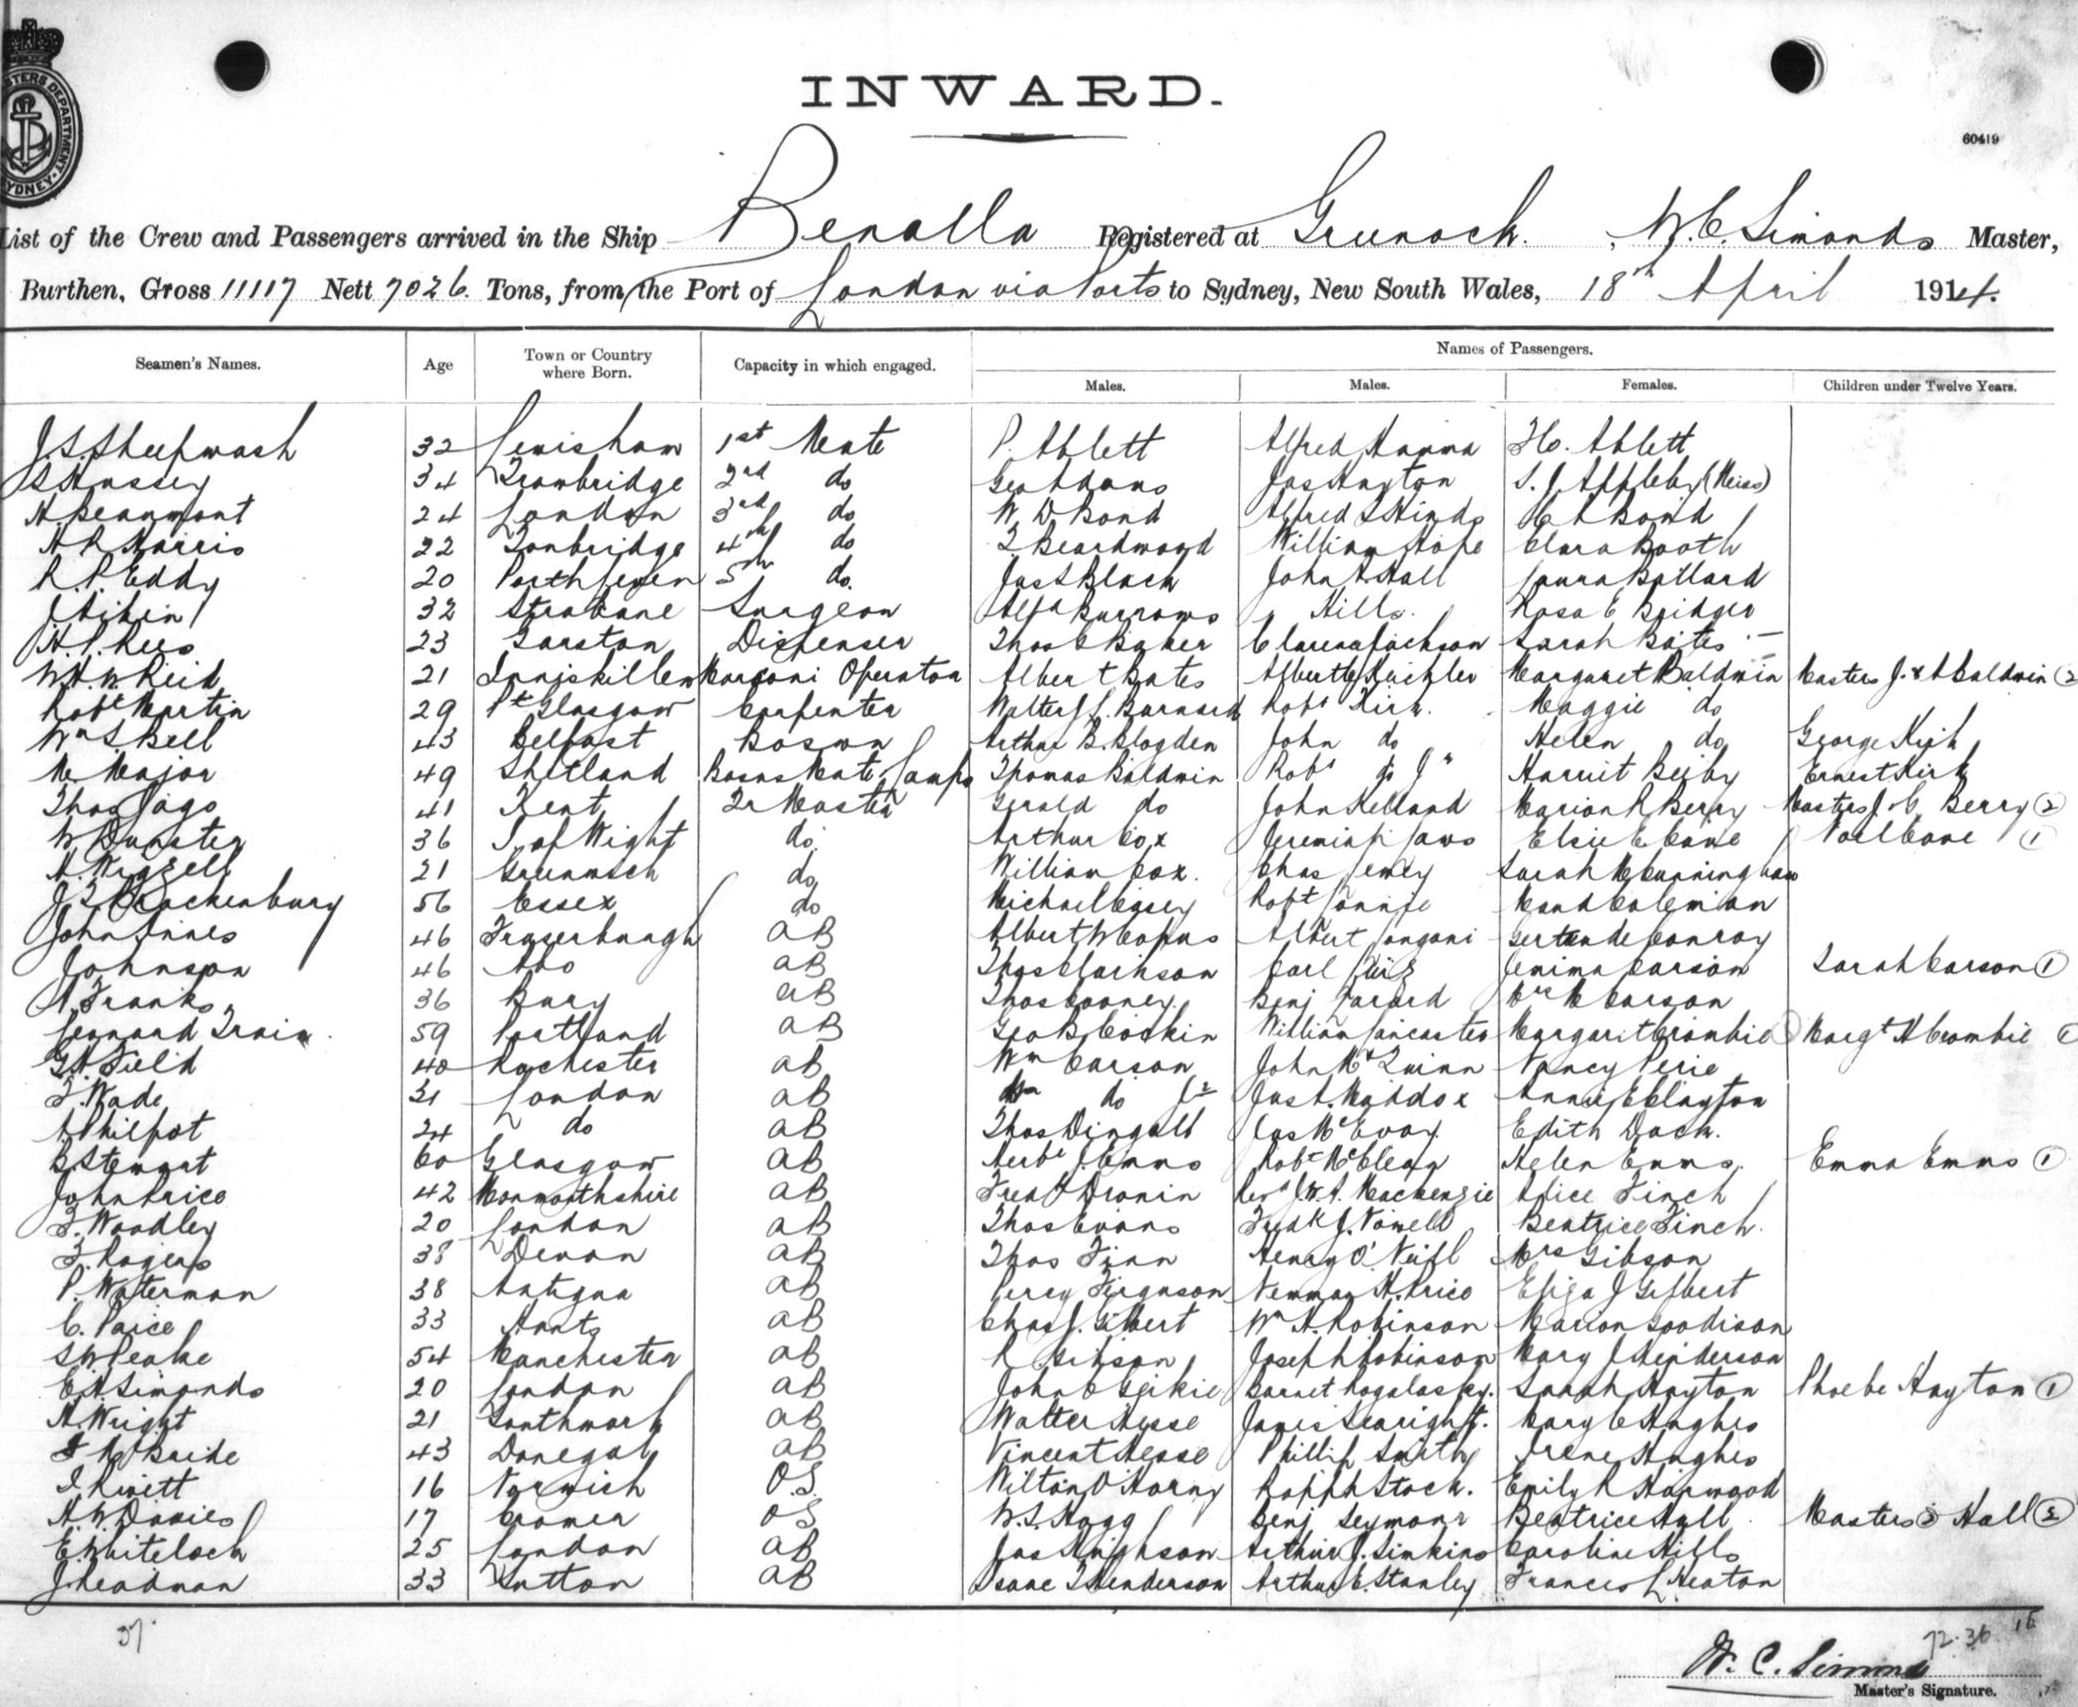 CUSTOMS DEPARTMENT SYDNEY
INWARD.
60419
List of the Crew and Passengers arrived in the Ship Benalla Registered at Greenock. , W. C. Simonds Master,
Burthen, Gross 11117 Nett 7026. Tons, from the Port of London via Ports to Sydney, New South Wales, 18th April 1914.
Seamen's Names. Age Town or Country where Born. Capacity in which engaged. Names of Passengers.
Males. Males. Females. Children under Twelve Years.
J. S. Sheepwash 32 Lewisham 1st Mate P. Ablett Alfred Hanna Ablett
Hussey 34 Trowbridge 2nd do Geo Adams Jas Hayton S. J. Appleby (Miss)
H Beaumont 24 London 3rd do W D Bond Alfred Hinds Bond
H R Harris 22 Tonbridge 4th do T Beardwood William Hope Clara Booth
R. P. Eddy 20 Porthleven 5th do. Jas S Black John Hall Laura Bollard
J Aikin 32 Strabane Surgeon Alfd Burrows Hills. Rosa E Bridger
H. P. Rees 23 Garston Dispenser Thos Baker Clarence Jackson Sarah Bates
W. H. W. Reid 21 Inniskillen Marconi Operator Albert Bates Albert Kuchler Margaret Baldwin Masters J. & A Baldwin 2
Robt Martin 29 Pt Glasgow Carpenter Walter Barnard Robt Kirk. Maggie do
Wm S Bell 43 Belfast Boswn Arthur B. Blogden John do Helen do George Kirk
M. Major 49 Shetland Bosns Mate Lamps Thomas Baldwin Robt do Jr Harriet Beiby Ernest Kirk
Thos Jago 41 Kent Qr Master Gerald do John Kelland Marion R Berry Masters J. C. Berry 2
W Dunster 36 I. of Wight do. Arthur Cox Jeremiah Laws Elsie E Cane Noel Cane 1
A. Wizzell 21 Greenwich do William Cox. Chas Lewey Sarah M Cunningham
J. T. Brackenbury 56 Essex do Michael Casey Robt Lonnie Maud Coleman
John Innes 46 Fraserburgh AB Albert W Copus Albert Longoni Gertrude Conroy
Johnson 46 Abo AB Thos Clarkson Carl Jemima Carson Sarah Carson 1
A. Franks 36 Bury AB Thos Cooney. Benj Mrs M Carson
Leonard Train. 59 Portland AB Geo B Coskin William Lancaster Margaret Crombie Margt A Crombie 1
G. H. Field 40 Rochester AB Wm Carson John Mc Quinn Nancy
F. Wade 31 London AB do Jr Jas A. Maddox Annie E Clayton
A Philpot 24 do AB Thos Dingall Jas McEvoy. Edith Dack.
B. Stewart 60 Glasgow AB Herbt J. Emms Robt McCleary Helen Emms. Emma Emms 1
John Price 42 Monmouthshire AB Fredk Dronin Revd J. W. A. Mackenzie Alice Finch
F. Woodley 20 London AB Thos Evans Fredk J. Nowell Beatrice Finch.
F. Rogers 38 Devon AB Thos Finn Henry O'Neill Mrs Gibson
P. Waterman 38 Antigua AB Percy Ferguson Newman H. Price Eliza J Gilbert
C. Paice 33 Hants AB Chas J. Gilbert Wm H. Robinson Marion Goodison
S W Peake 54 Manchester AB R Gibson Joseph Robinson Mary J Henderson
E. H. Simonds 20 London AB John Geikie Barnet Rogalasky. Sarah Hayton Phoebe Hayton 1
A. Wright 21 Southwark AB Walter Hesse James Searight. Mary C Hughes
McBride 43 Donegal AB Vincent Hesse Phillip Smith Irene Hughes
Rivett 16 Norwich O.S. Wilton Horny Ralph Stock. Emily R Harwood
H. W. Davies 17 Cromer OS W. S. Hogg Benj Seymour Beatrice Hall Masters Hall
E. Whitelock 25 London AB Jas Arthur J. Simkins Caroline Hills
J. Leadman 33 Sutton AB Isaac T Henderson Arthur E. Stanley Frances L Heaton
37. 72. 36 16
W. C. Simonds
Master's Signature.